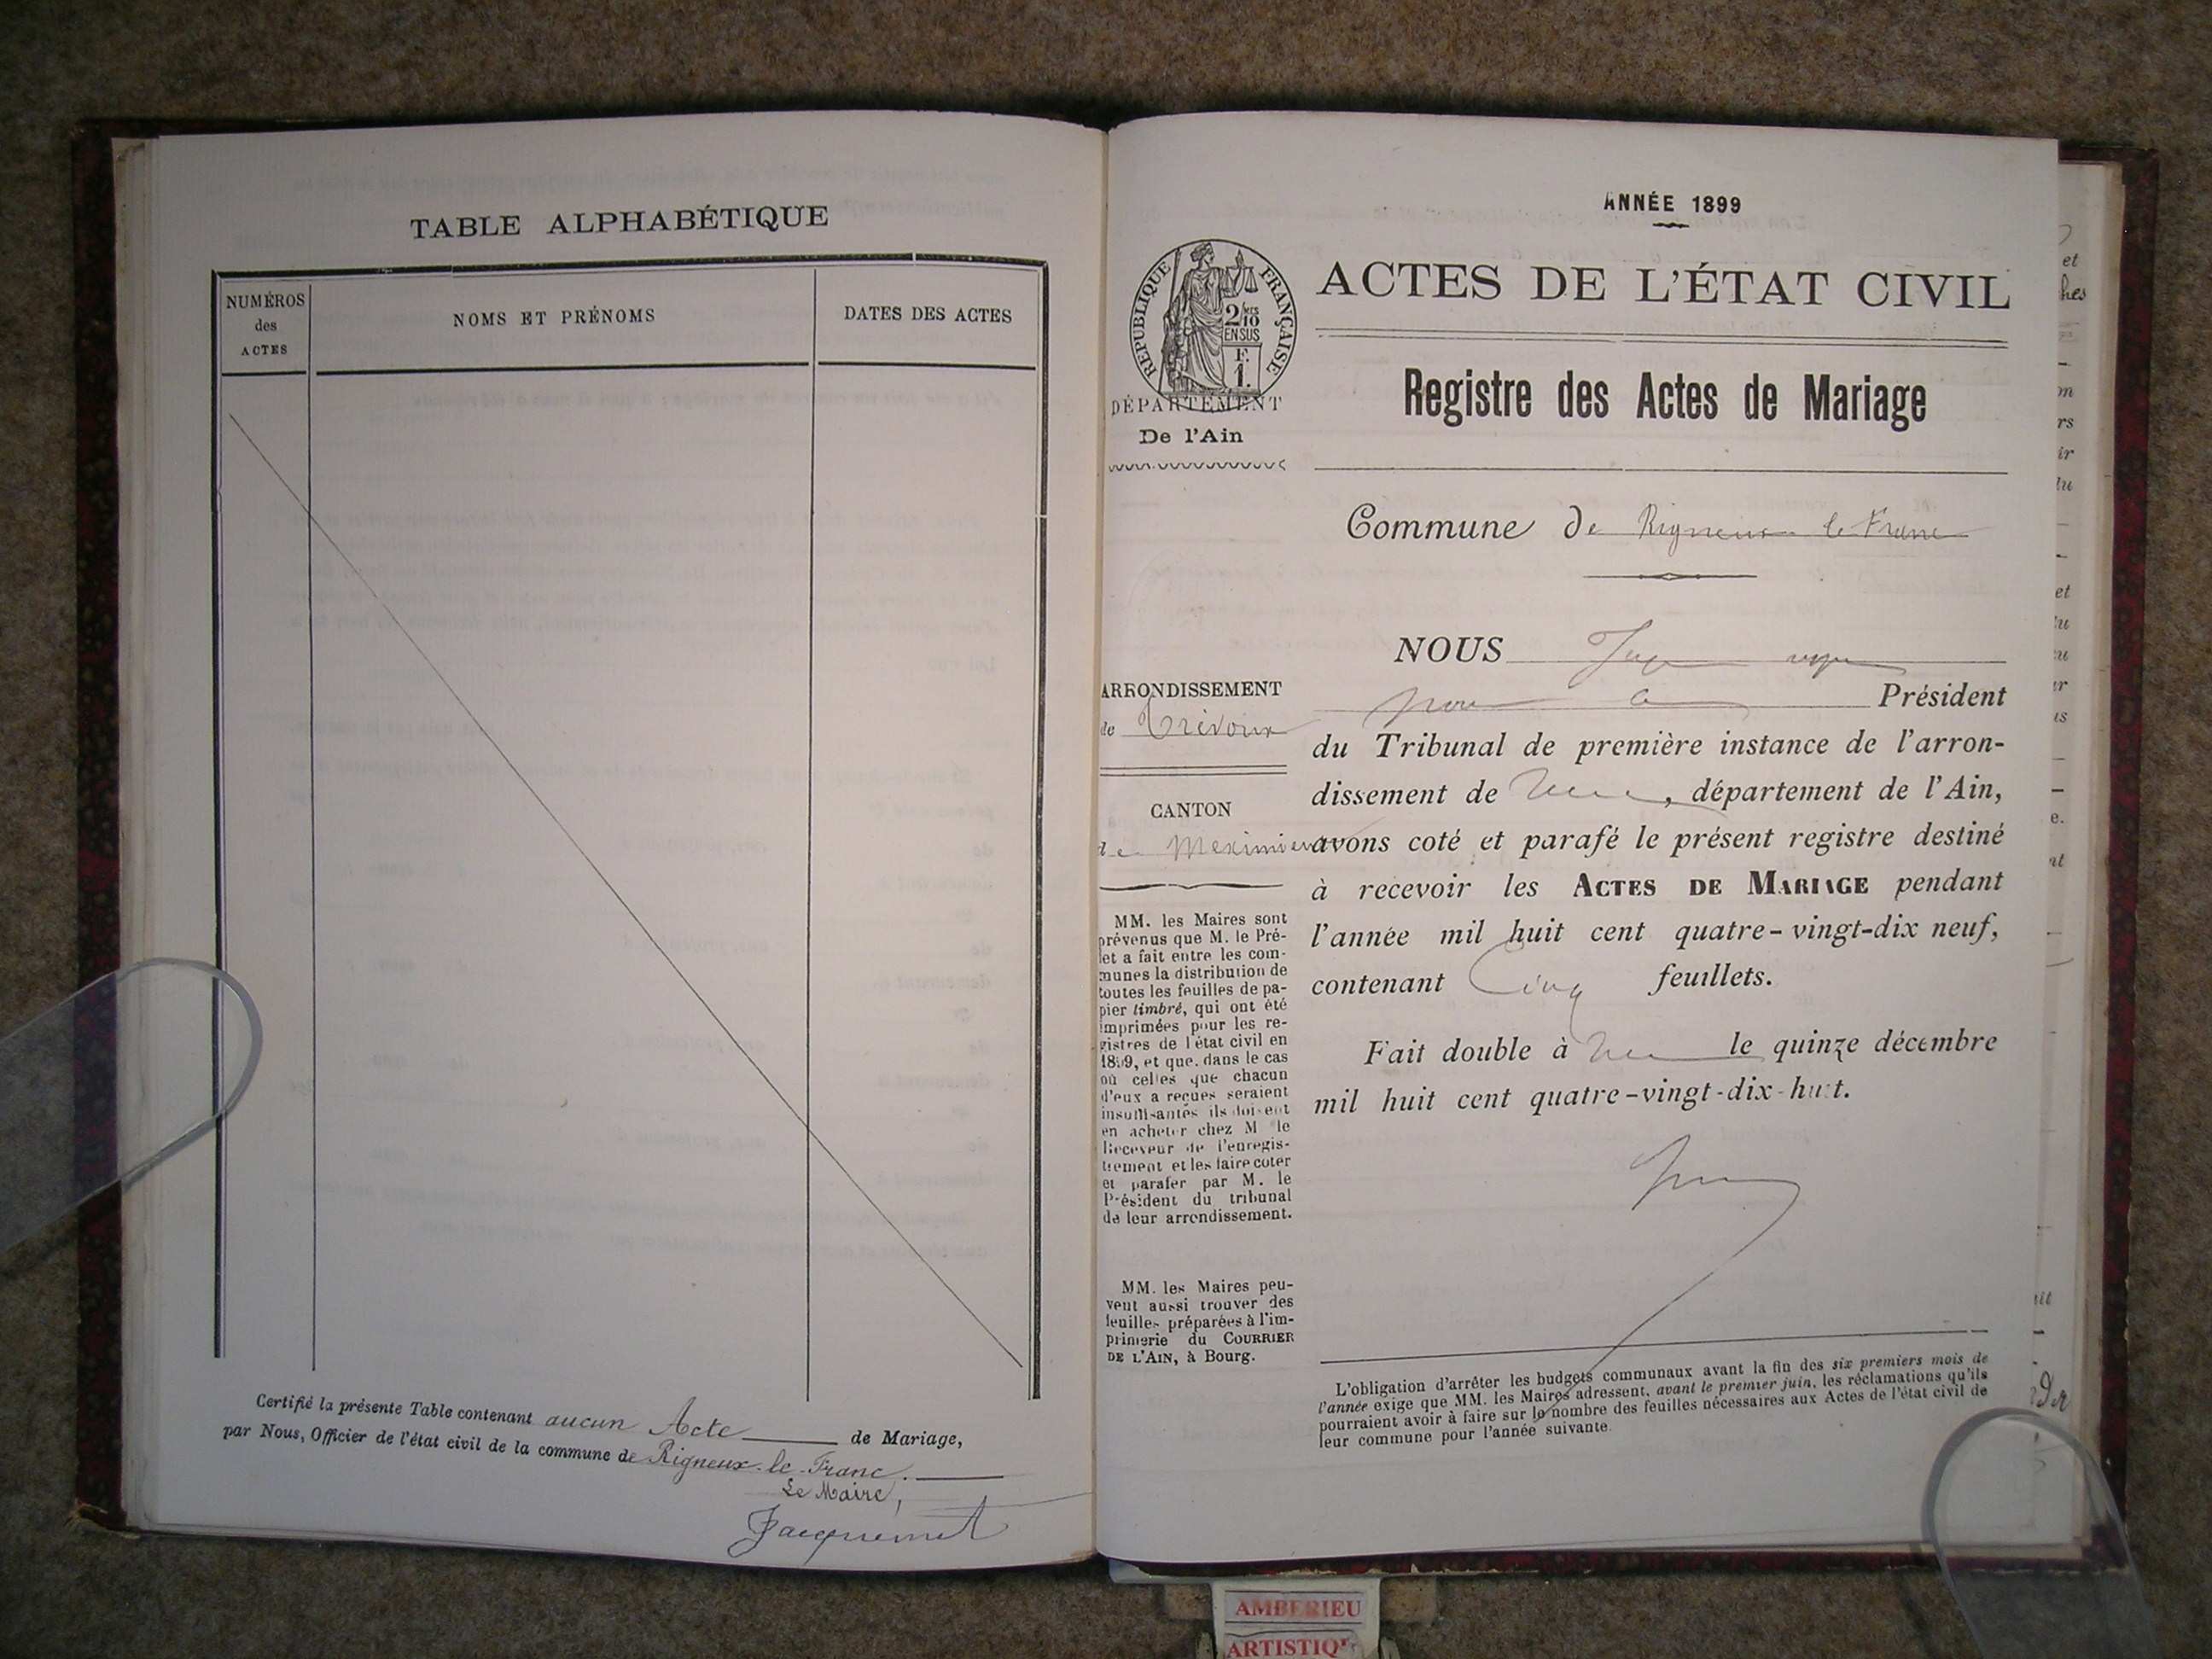 TABLE ALPHABÉTIQUE
NUMÉROS
des
ACTES
NOMS ET PRÉNOMS
DATES DES ACTES
Certifié la présente Table contenant aucun Acte de Mariage,
par Nous, Officier de l'état civil de la commune de Rigneux-le-Franc.
Le Maire,
Jacquemet
ANNÉE 1899
RÉPUBLIQUE FRANÇAISE
2/10 MES
EN SUS
F.
1.
DÉPARTEMENT
De l'Ain
ACTES DE L'ÉTAT CIVIL
Registre des Actes de Mariage
Commune de Rigneux le Franc
ARRONDISSEMENT
de Trévoux
CANTON
de Meximieux
MM. les Maires sont
prévenus que M. le Pré-
fet a fait entre les com-
munes la distribution de
toutes les feuilles de pa-
pier timbré, qui ont été
imprimées pour les re-
gistres de l'état civil en
1899, et que, dans le cas
où celles que chacun
d'eux a reçues seraient
insuffisantes ils doivent
en acheter chez M le
Receveur de l'enregis-
trement et les faire coter
et parafer par M. le
Président du tribunal
de leur arrondissement.
MM. les Maires peu-
vent aussi trouver des
feuilles préparées à l'im-
primerie du COURRIER
DE L'AIN, à Bourg.
NOUS Juge
Président
du Tribunal de première instance de l'arron-
dissement de , département de l'Ain,
avons coté et parafé le présent registre destiné
à recevoir les ACTES DE MARIAGE pendant
l'année mil huit cent quatre-vingt-dix neuf,
contenant Cinq feuillets.
Fait double à le quinze décembre
mil huit cent quatre-vingt-dix-huit.
L'obligation d'arrêter les budgets communaux avant la fin des six premiers mois de
l'année exige que MM. les Maires adressent, avant le premier juin, les réclamations qu'ils
pourraient avoir à faire sur le nombre des feuilles nécessaires aux Actes de l'état civil de
leur commune pour l'année suivante.
AMBERIEU
ARTISTIQU